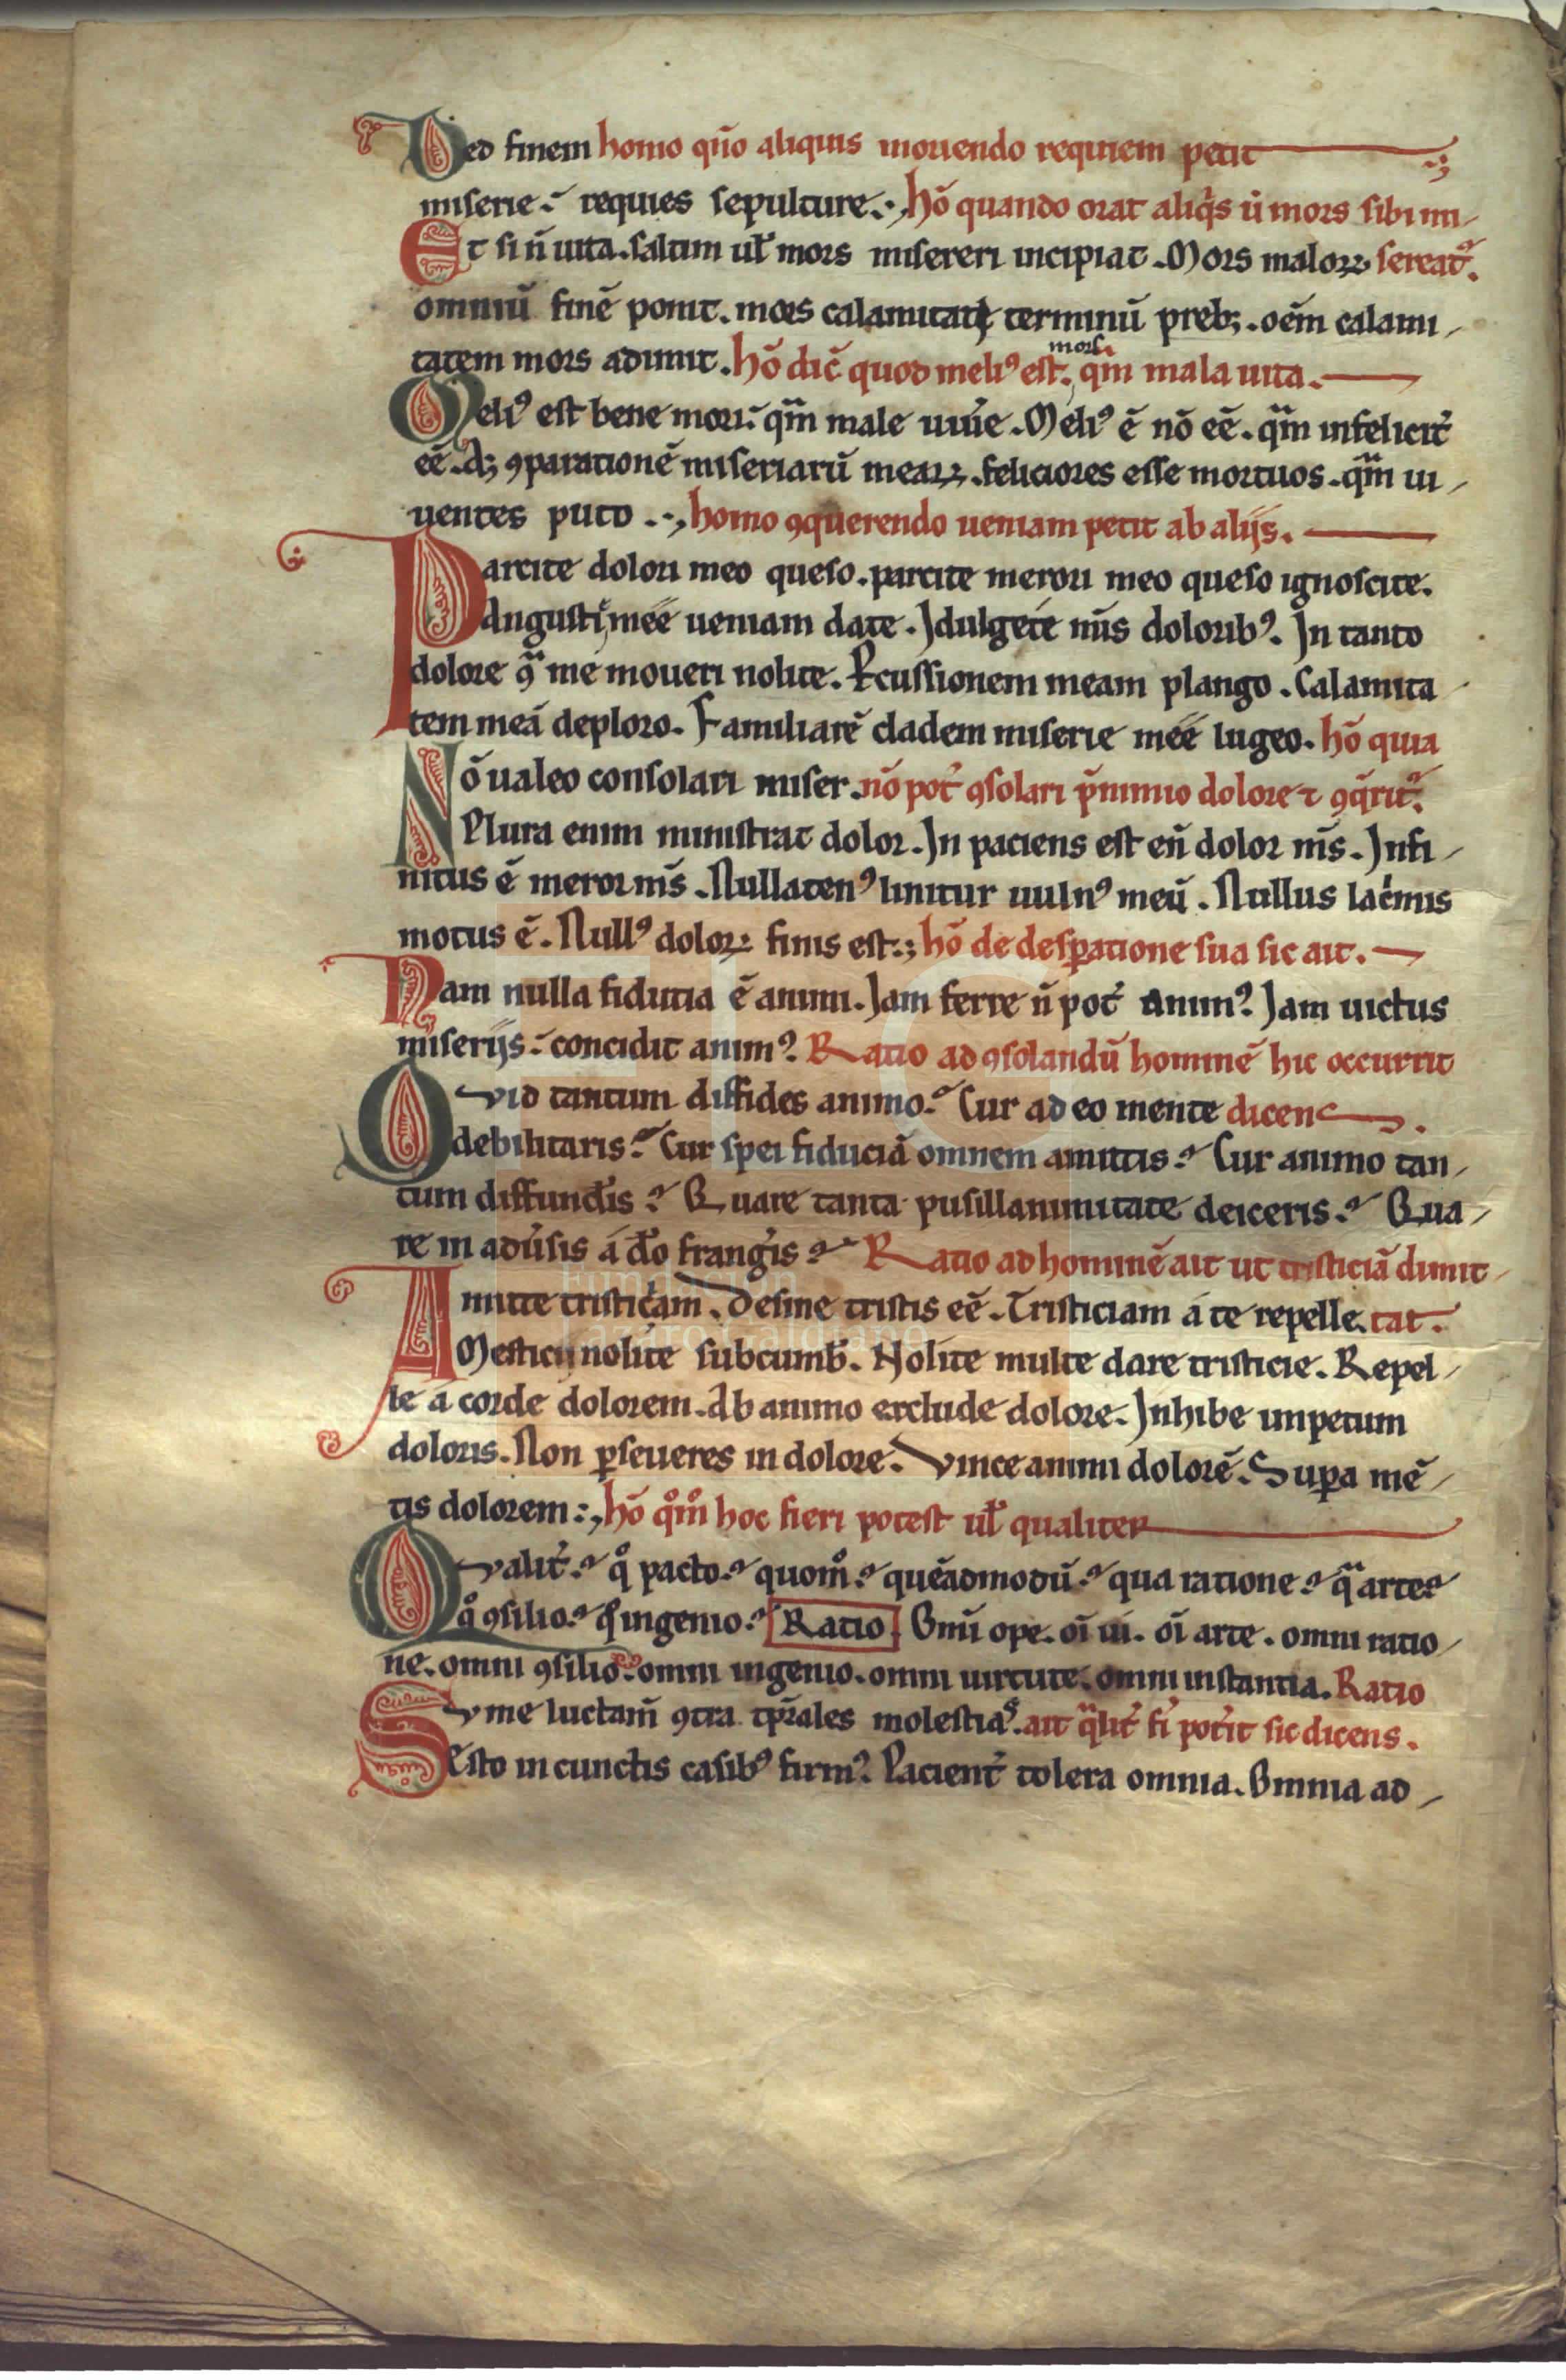 Ded finem homo qūo aliquis mouendo requiem petit
miserie. requies sepulture. hō quando orat aliq̇s ut mors sibi mi-
Et si n̄ uita. saltim ul̄ mors misereri incipiat. Mors maloꝝ sereat᷑.
omniū finē ponit. mors calamitatꝭ terminū preb;. oēm calami-
tatem mors adimit. hō dic̄ quod meli᷒ est mors. qm̄ mala uita.
Meli᷒ est bene mori. qͣm male uiu̓e. Meli᷒ ē nō eē. qͣm infelicit̓
eē. A; ꝯparationē miseriarū meaꝝ. feliciores esse mortuos. qͣm ui-
uentes puto. homo ꝯquerendo ueniam petit ab alijs.
Parcite dolori meo queso. parcite merori meo queso ignoscite.
Angustię méé ueniam date. Idulgete mīs dolorib᷒. In tanto
dolore ꝯͣ me moueri nolite. Ꝑcussionem meam plango. Calamita
tem meā deploro. Familiarē cladem miserie méé lugeo. hō quia
Nō ualeo consolari miser. nō pot̓ ꝯsolari p̄nimio dolore ⁊ ꝯq̄rit᷑.
Plura enim ministrat dolor. In paciens est en̄ dolor m̄s. Infi-
nitus ē meror m̄s. Nullaten᷒ linitur uuln᷒ meū. Nullus lac̓mis
motus ē. Null᷒ doloꝝ finis est.; hō de desꝑatione sua sic ait.
Nam nulla fidutia ē animi. Jam ferre n̄ pot̓ anim᷒. Jam uictus
miserijs. concidit anim᷒. Ratio ad ꝯsolandū hominē hic occurrit
Quid tantum diffides animo? Cur ad eo mente dicens.
debilitaris? Cur spei fiduciā omnem amittis? Cur animo tan-
tum diffund̓is? Quare tanta pusillanimitate deiceris? Qua-
re in adu̓sis á d̄o frang̓is? Ratio ad hominē ait ut tristiciā dimit-
Amitte tristic̓am. Desine tristis eē. Tristiciam á te repelle. tat.
Mesticii nolite subcumb̓. Nolite multe dare tristicie. Repel-
le á corde dolorem. Ab animo exclude dolore. Inhibe impetum
doloris. Non ꝑseueres in dolore. Vince animi dolorē. Suꝑa mē-
tis dolorem:, hō qͦm̊ hoc fieri potest ul̄ qualiter
Qualit̓? qͦ pacto? quom̊? quēadmodū? qua ratione? qͣ arte?
qͦ ꝯsilio? qͦ ingenio? Ratio Omī ope. oī ui. oī arte. omni ratio-
ne. omni ꝯsilio. omni ingenio. omni uirtute. omni instantia. Ratio
Sume luctam̄ ꝯtra tp̄rales molestias. ait qͣlit̓ fi̓ pot̓it sic dicens.
Esto in cunctis casib᷒ firm᷒. Pacient̓ tolera omnia. Omnia ad-
Fundación
Lázaro Galdiano